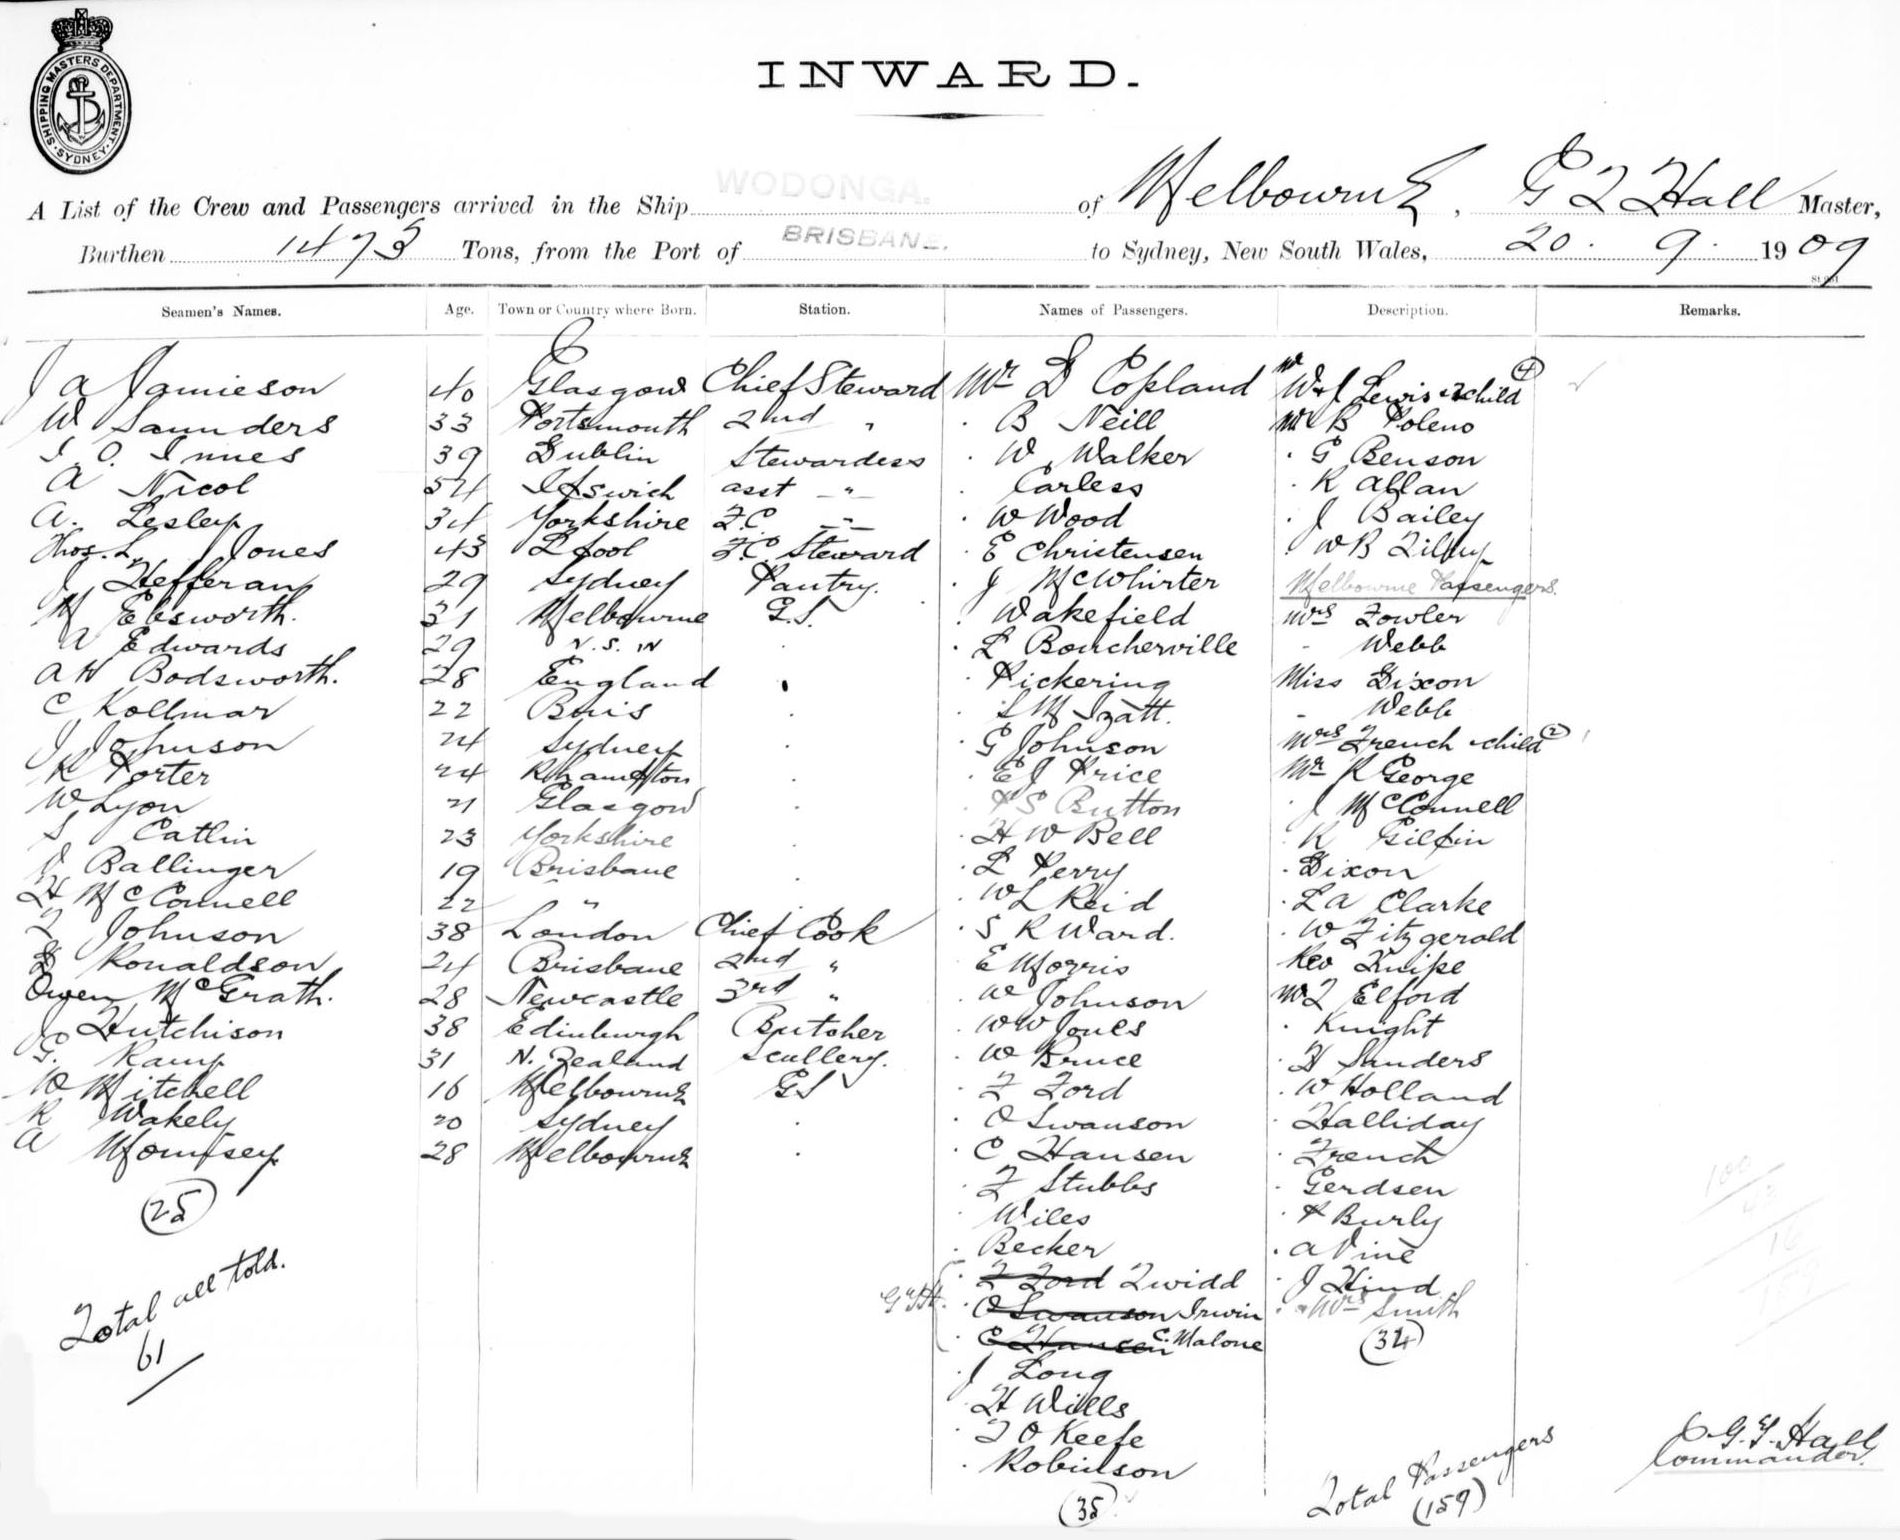 SHIPPING MASTERS DEPARTMENT. SYDNEY.
INWARD.
A List of the Crew and Passengers arrived in the Ship WODONGA. of Melbourne, G T Hall Master,
Burthen 1473 Tons, from the Port of BRISBANE. to Sydney, New South Wales, 20. 9. 1909
Seamen's Names. Age. Town or Country where Born. Station. Names of Passengers. Description. Remarks.
J A Jamieson 40 Glasgow Chief Steward Mr D Copland Mr W & J Lewis & 2 child (4)
W Saunders 33 Portsmouth 2nd " B Neill Mr B Poleno
I. O. Innes 39 Dublin Stewardess W Walker G Benson
A Nicol 54 Ipswich asst " Carless R Allan
A. Lesley 34 Yorkshire F.C " W Wood J Bailey
Thos. L. Jones 43 L'pool F.C. Steward E Christensen W B Tilley
J Hefferan 29 Sydney Pantry. J McWhirter Melbourne Passengers.
M Ebsworth. 31 Melbourne G.S. Wakefield Mrs Fowler
A Edwards 29 N.S.W L Boucherville Webb
A H Bodsworth. 28 England Pickering Miss Dixon
C Kollmar 22 L M Izatt. Webb
J Johnson 24 Sydney G Johnson Mrs French & child (2)
R Porter 24 R'hampton E J Price Mr R George
W Lyon 21 Glasgow S Button J McConnell
S Catlin 23 Yorkshire H W Bell R Gilfin
J Ballinger 19 Brisbane L Perry Dixon
H McConnell 22 " W L Reid L A Clarke
T Johnson 38 London Chief Cook S R Ward. W Fitzgerald
D Ronaldson 24 Brisbane 2nd " E Morris Rev Knipe
Owen McGrath. 28 Newcastle 3rd " W Johnson Mr T Elford
J Hutchison 38 Edinburgh Butcher W W Jones Knight
G. Kamp 31 N. Zealand Scullery. W Bruce H Sanders
W Mitchell 16 Melbourne G S F Ford W Holland
R Wakely 20 Sydney O Swanson Halliday
A Mountsey 28 Melbourne C Hansen French
F Stubbs Gerdsen
Wiles P Burly
(25) Becker A Vine
F Ford Twidd J Hind
O Swanson Irwin Mrs Smith
C Hansen C. Malone (34)
Total all told.
61
J Long
H Wills
T O Keefe
Robinson
(35)
Total Passengers
(159)
G.T. Hall
Commander.